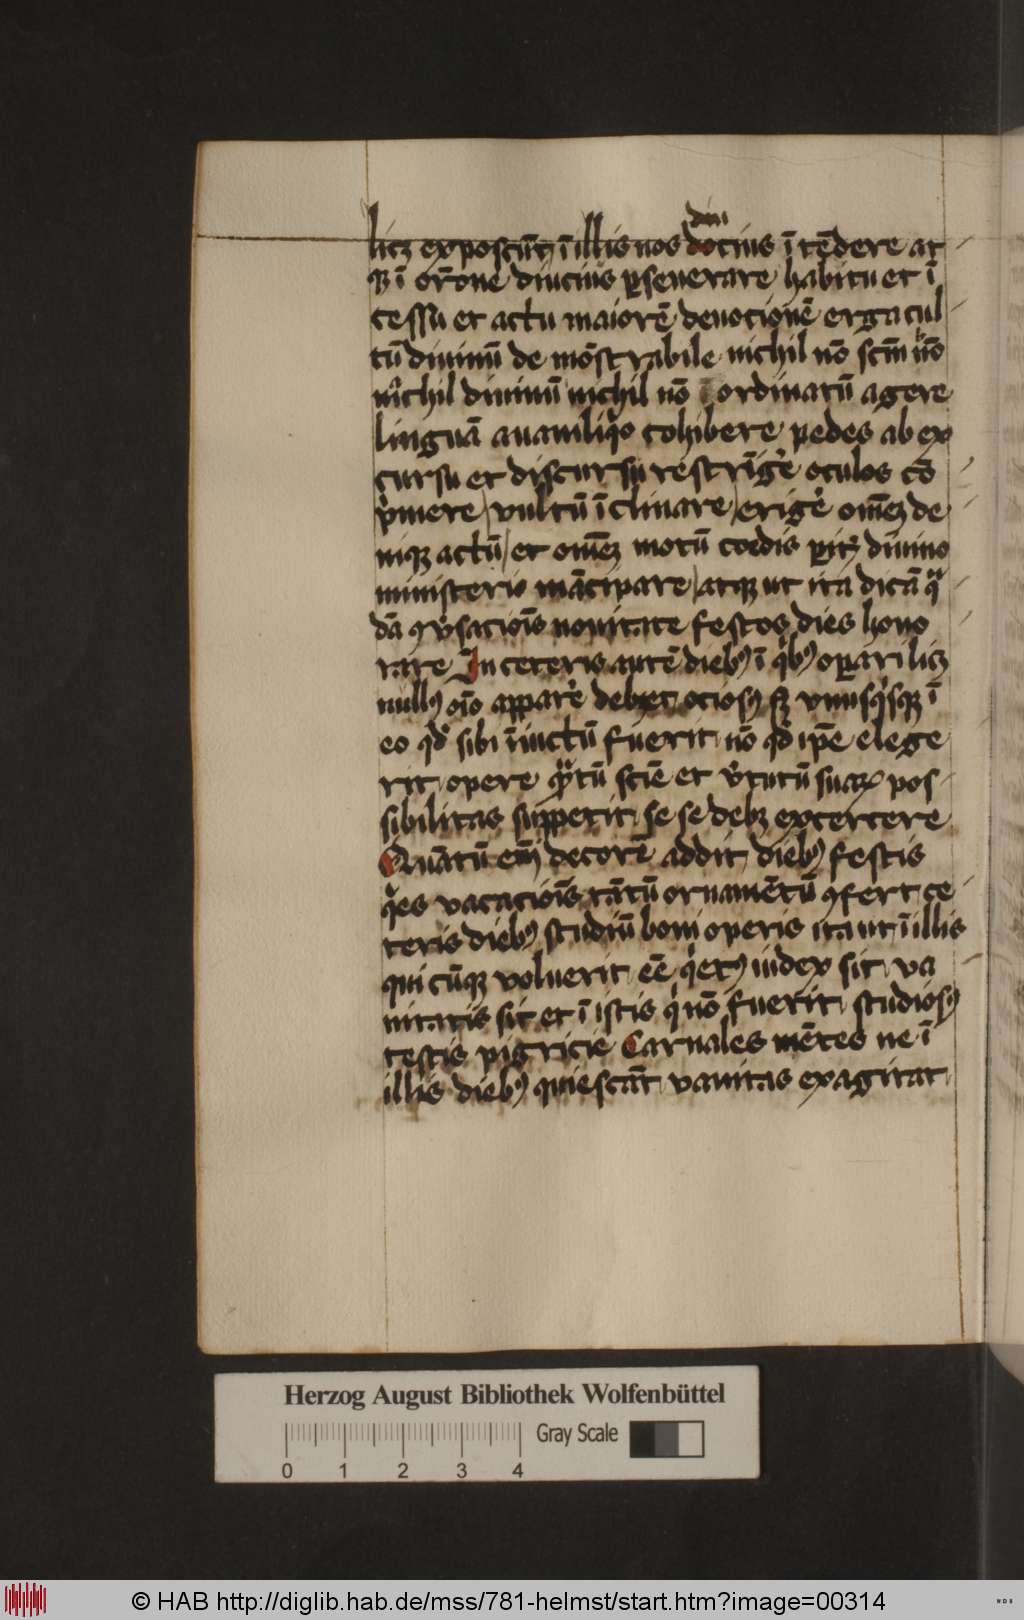 diu
licꝫ exposcūt ī illis nos docius ī tēdere at
qꝫ ī orōne diucius ꝑseuerare habitu et ī
cessu et actu maiorē deuocionē erga cul
tū diuinū de mōstrabile nichil nō scm̄
nichil diuinū nichil nō ordinatū agere
linguā a uaniliqͦo cohibere pedes ab ex
cursu et discursu restrīgere oculos cō
p̍mere / vultū īclinare / erigere om̄eꝫ de
niqꝫ actū / et om̄eꝫ motū cordis diuino
ministerio mācipare / atqꝫ ut ita dicā qͣ
dā ꝯu̍sacioīs nouitate festos dies hono
rare In ceteris autē diebꝰ ī qͥbꝰ oꝑari licꝫ
nullꝰ oīo apparere debet ociosꝰ sꝫ vnusqͥsqꝫ ī
eo qd̓ sibi īiuctū fuerit nō qd̓ ip̄e elege
rit opere qͣtū sciē et v̓tutū suaꝝ pos
sibilitas suppetit se se debꝫ excercere
Quātū em̄ decorē addit diebꝰ festis
qͥes vacacioīs tātū ornamētū ꝯfert ce
teris diebꝰ studiū boni operis ita ut ī illis
qui cūqꝫ voluerit eē qͥetꝰ iudex sit va
nitatis sit et ī istis qͥ nō fuerit studiosꝰ
testis pigricie Carnales mētes ne ī
illis diebꝰ quiescāt vanitas exagitat
Herzog August Bibliothek Wolfenbüttel
Gray Scale
0 1 2 3 4
© HAB http://diglib.hab.de/mss/781-helmst/start.htm?image=00314